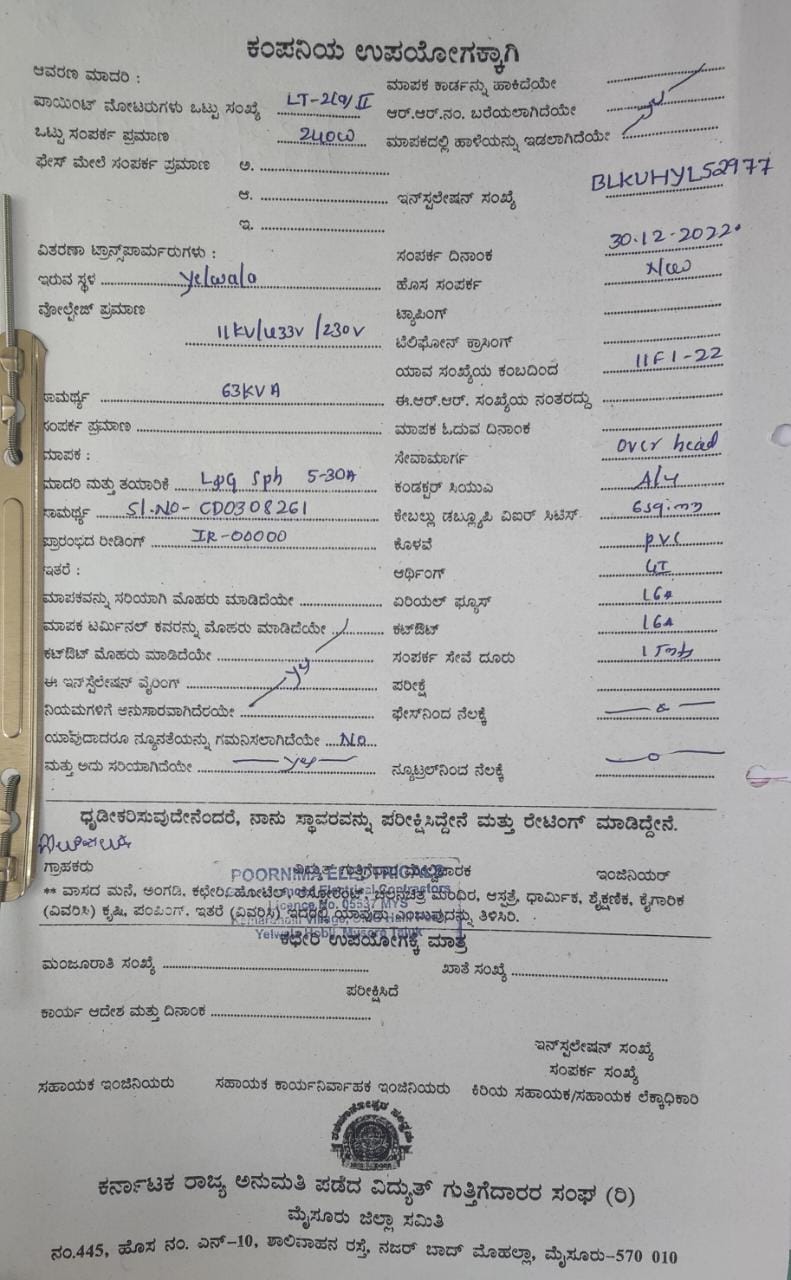 ಕಂಪನಿಯ ಉಪಯೋಗಕ್ಕಾಗಿ
ಆವರಣ ಮಾದರಿ : ಮಾಪಕ ಕಾರ್ಡನ್ನು ಹಾಕಿದೆಯೇ
ಪಾಯಿಂಟ್ ಮೋಟರುಗಳು ಒಟ್ಟು ಸಂಖ್ಯೆ LT-2(a)/II ಆರ್.ಆರ್.ನಂ. ಬರೆಯಲಾಗಿದೆಯೇ
ಒಟ್ಟು ಸಂಪರ್ಕ ಪ್ರಮಾಣ 240W ಮಾಪಕದಲ್ಲಿ ಹಾಳೆಯನ್ನು ಇಡಲಾಗಿದೆಯೇ
ಫೇಸ್ ಮೇಲೆ ಸಂಪರ್ಕ ಪ್ರಮಾಣ ಅ.
ಆ. ಇನ್‌ಸ್ಟಲೇಷನ್ ಸಂಖ್ಯೆ BLKUHYL52977
ಇ.
ವಿತರಣಾ ಟ್ರಾನ್ಸ್‌ಪಾರ್ಮರುಗಳು : ಸಂಪರ್ಕ ದಿನಾಂಕ 30.12.2022
ಇರುವ ಸ್ಥಳ Yelwala ಹೊಸ ಸಂಪರ್ಕ New
ವೋಲ್ಟೇಜ್ ಪ್ರಮಾಣ ಟ್ಯಾಪಿಂಗ್
11KV/433V/230V ಟೆಲಿಫೋನ್ ಕ್ರಾಸಿಂಗ್
ಯಾವ ಸಂಖ್ಯೆಯ ಕಂಬದಿಂದ 11F1-22
ಸಾಮರ್ಥ್ಯ 63KVA ಈ.ಆರ್.ಆರ್. ಸಂಖ್ಯೆಯ ನಂತರದ್ದು
ಸಂಪರ್ಕ ಪ್ರಮಾಣ ಮಾಪಕ ಓದುವ ದಿನಾಂಕ
ಮಾಪಕ : ಸೇವಾಮಾರ್ಗ Over head
ಮಾದರಿ ಮತ್ತು ತಯಾರಿಕೆ L&G Sph 5-30A ಕಂಡಕ್ಟರ್ ಸಿಯುಎ Aly
ಸಾಮರ್ಥ್ಯ Sl.NO- CD0308261 ಕೇಬಲ್ಲು ಡಬ್ಲ್ಯೂಪಿ ವಿಐರ್ ಸಿಟಿಸ್ 6sq.mm
ಪ್ರಾರಂಭದ ರೀಡಿಂಗ್ IR-00000 ಕೊಳವೆ PVC
ಇತರೆ : ಆರ್ಥಿಂಗ್ GI
ಮಾಪಕವನ್ನು ಸರಿಯಾಗಿ ಮೊಹರು ಮಾಡಿದೆಯೇ ಏರಿಯಲ್ ಫ್ಯೂಸ್ 16A
ಮಾಪಕ ಟರ್ಮಿನಲ್ ಕವರನ್ನು ಮೊಹರು ಮಾಡಿದೆಯೇ ಕಟ್‌ಔಟ್ 16A
ಕಟ್‌ಔಟ್ ಮೊಹರು ಮಾಡಿದೆಯೇ ಸಂಪರ್ಕ ಸೇವೆ ದೂರು
ಈ ಇನ್‌ಸ್ಟೆಲೇಷನ್ ವೈರಿಂಗ್ ಪರೀಕ್ಷೆ
ನಿಯಮಗಳಿಗೆ ಅನುಸಾರವಾಗಿದೆರಯೇ ಫೇಸ್‌ನಿಂದ ನೆಲಕ್ಕೆ
ಯಾವುದಾದರೂ ನ್ಯೂನತೆಯನ್ನು ಗಮನಿಸಲಾಗಿದೆಯೇ No
ಮತ್ತು ಅದು ಸರಿಯಾಗಿದೆಯೇ yes ನ್ಯೂಟ್ರಲ್‌ನಿಂದ ನೆಲಕ್ಕೆ
ಧೃಡೀಕರಿಸುವುದೇನೆಂದರೆ, ನಾನು ಸ್ಥಾವರವನ್ನು ಪರೀಕ್ಷಿಸಿದ್ದೇನೆ ಮತ್ತು ರೇಟಿಂಗ್ ಮಾಡಿದ್ದೇನೆ.
ಗ್ರಾಹಕರು ವಿದ್ಯುತ್ ಗುತ್ತಿಗೆದಾರ ಮೇಲ್ವಿಚಾರಕ ಇಂಜಿನಿಯರ್
POORNIMA ELECTRICALS
** ವಾಸದ ಮನೆ, ಅಂಗಡಿ, ಕಛೇರಿ, ಹೋಟೆಲ್, ರೆಸ್ಟೋರೆಂಟ್, ಚಲನಚಿತ್ರ ಮಂಧಿರ, ಆಸ್ಪತ್ರೆ, ಧಾರ್ಮಿಕ, ಶೈಕ್ಷಣಿಕ, ಕೈಗಾರಿಕ
Electrical Contractors
Licence No. 05537 MYS
(ವಿವರಿಸಿ) ಕೃಷಿ, ಪಂಪಿಂಗ್. ಇತರೆ (ವಿವರಿಸಿ) ಇದರಲ್ಲಿ ಯಾವುದು ಎಂಬುವುದನ್ನು ತಿಳಿಸಿರಿ.
Yelwala Hobli, Mysore Taluk
ಕಛೇರಿ ಉಪಯೋಗಕ್ಕೆ ಮಾತ್ರ
ಮಂಜೂರಾತಿ ಸಂಖ್ಯೆ ಖಾತೆ ಸಂಖ್ಯೆ
ಪರೀಕ್ಷಿಸಿದೆ
ಕಾರ್ಯ ಆದೇಶ ಮತ್ತು ದಿನಾಂಕ
ಇನ್‌ಸ್ಟಲೇಷನ್ ಸಂಖ್ಯೆ
ಸಂಪರ್ಕ ಸಂಖ್ಯೆ
ಸಹಾಯಕ ಇಂಜಿನಿಯರು ಸಹಾಯಕ ಕಾರ್ಯನಿರ್ವಾಹಕ ಇಂಜಿನಿಯರು ಕಿರಿಯ ಸಹಾಯಕ/ಸಹಾಯಕ ಲೆಕ್ಕಾಧಿಕಾರಿ
ಕರ್ನಾಟಕ ರಾಜ್ಯ ಅನುಮತಿ ಪಡೆದ ವಿದ್ಯುತ್ ಗುತ್ತಿಗೆದಾರರ ಸಂಘ (ರಿ)
ಮೈಸೂರು ಜಿಲ್ಲಾ ಸಮಿತಿ
ನಂ.445, ಹೊಸ ನಂ. ಎನ್-10, ಶಾಲಿವಾಹನ ರಸ್ತೆ, ನಜರ್ ಬಾದ್ ಮೊಹಲ್ಲಾ, ಮೈಸೂರು-570 010